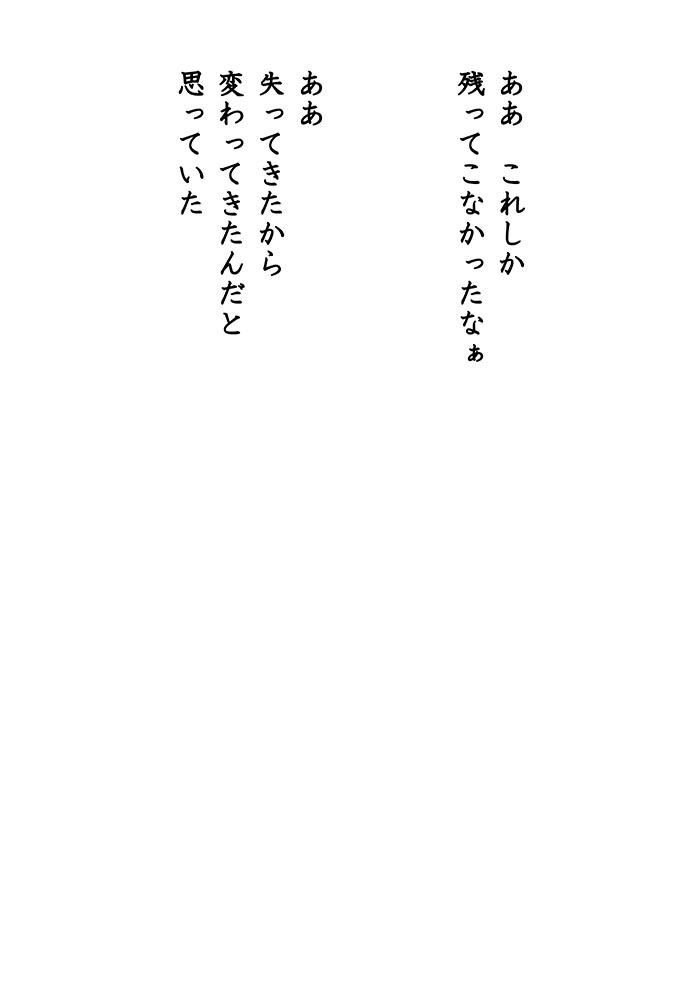 ああ　これしか
残ってこなかったなぁ
ああ
失ってきたから
変わってきたんだと
思っていた